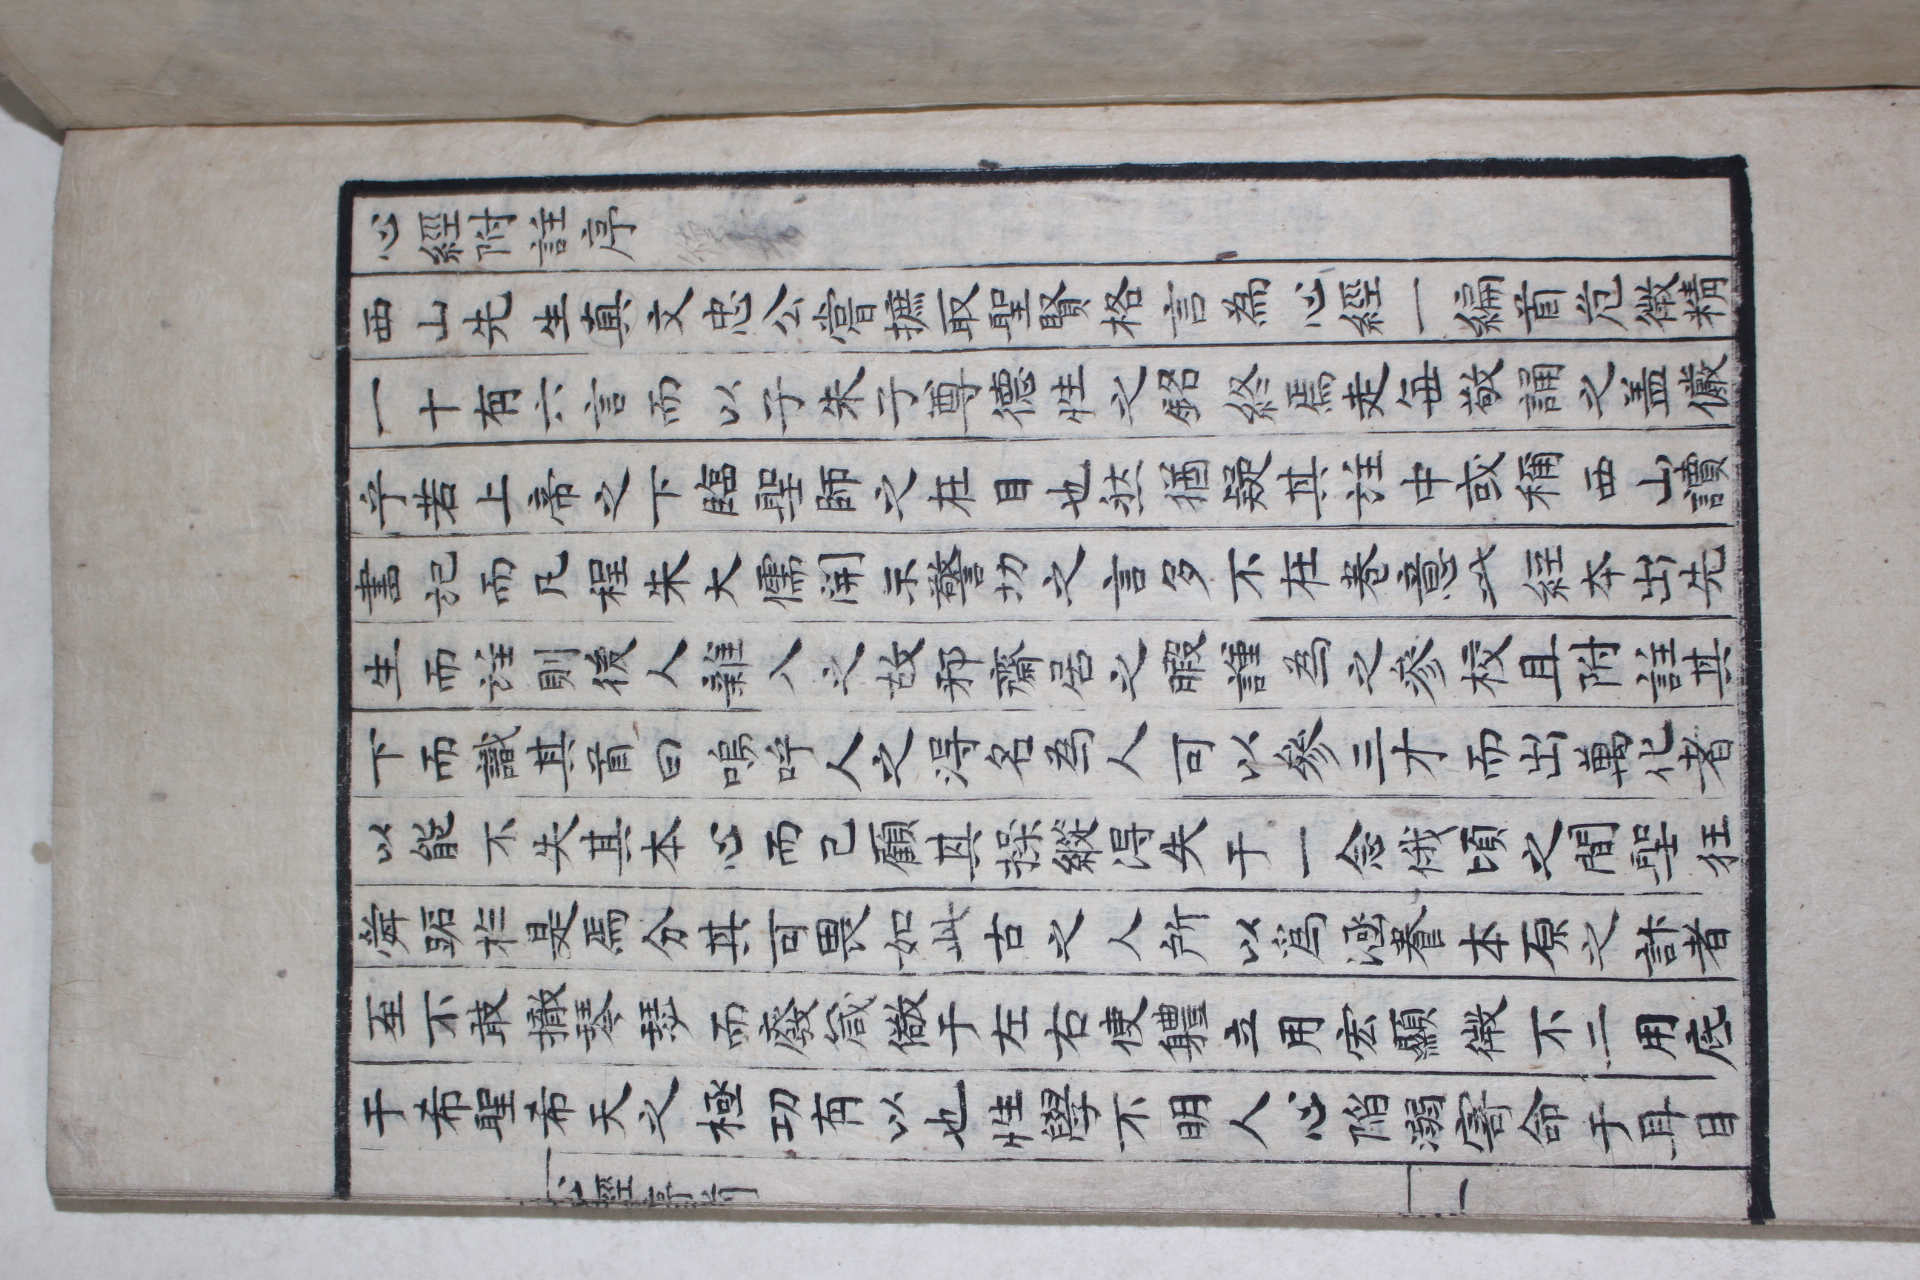 心經附註序
西山先生真文忠公嘗摭取聖賢格言為心經一編首危微精
一十有六言而以子朱子尊德性之銘終焉走每敬誦之盖儼
乎若上帝之下臨聖師之在目也然猶疑其註中或稱西山讀
書記而凡程朱大儒開示警切之言多不在卷意此經本出先
生而註則後人雜入之故邪齋居之暇謹為之參校且附註其
下而識其首曰嗚呼人之得名為人可以參三才而出萬化者
以能不失其本心而已顧其操縱得失于一念俄頃之間聖狂
舜跖於是焉分其可畏如此古之人所以爲涵養本原之計者
至不敢撤琴瑟而廢箴儆于左右使軆立用宏顯微不二用底
于希聖希天之極功有以也性學不明人心陷溺寄命于耳目
心經序前
一